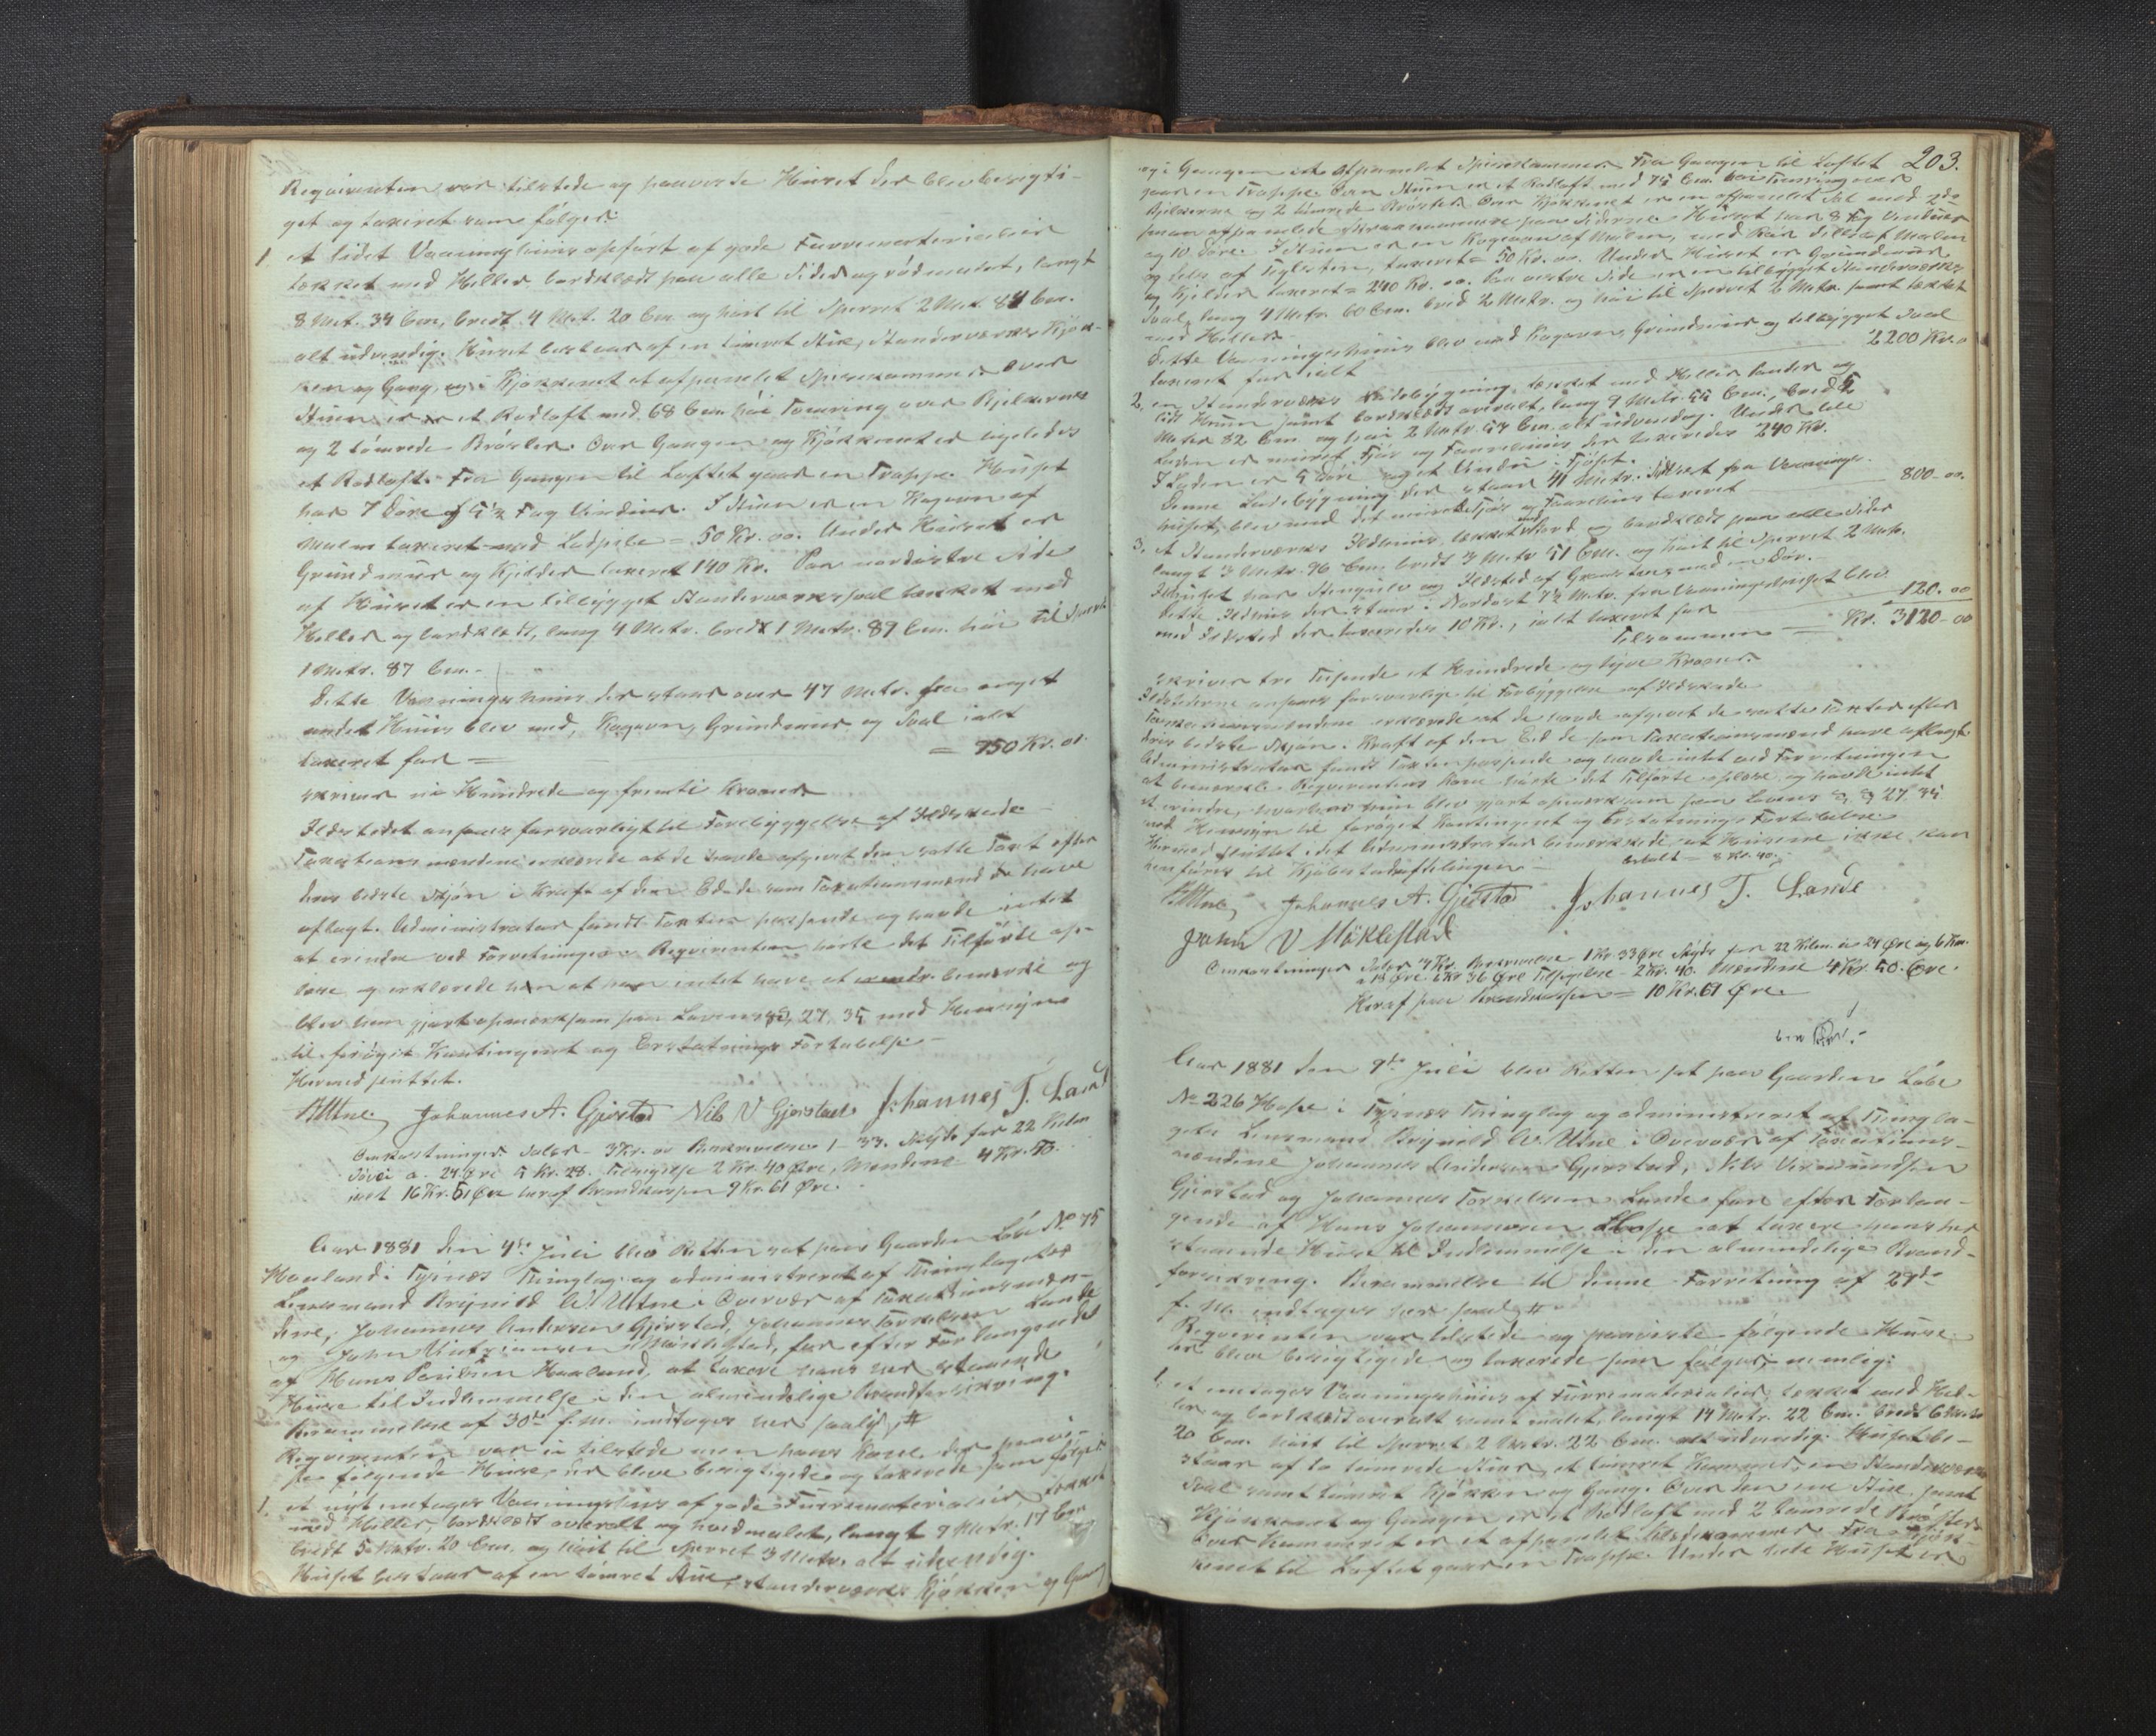 Reqvirenten var tilstede og paaviste Huset der blev besigti-
get og taxeret som følger:
1. et lidet Vaaningshuus opført af gode Furrumaterialier
tækket med Heller bordklædt paa alle Sider og rødmalet, langt
8 Met. 34 Cm, bredt 4 Met. 20 Cm og høit til Sperret 2 Met. 84 Cm.
alt udvendig. Huset bestaar af en tømret Stue, Standerværks Kjøk-
ken og Gang, og i Kjøkkenet et afpanelet Spisekammer. Over
Stuen er et Rodloft med 68 Cm. høi Tømring over Bjelkerne
og 2 tømrede Brøster. Over Gangen og Kjøkkenet er ligeledes
et Rodloft. Fra Gangen til Loftet gaar en Trappe. Huset
har 7 Døre og 5½ Fag Vinduer. I Stuen er en Kogeovn af
Malm taxeret med Ladpibe = 50 Kr. 00. Under Huset er
Grundmur og Kjelder taxeret 140 Kr. Paa nordøstre Side
af Huset er en tilbygget Standerværkssval tækket med
Heller og bordklædt, lang 4 Metr. bredt 1 Metr. 89 Cm. høi til Sperret
1 Metr. 87 Cm. -
Dette Vaaningshuus der staar over 47 Metr. fra noget
andet Huus blev med, Kogeovn, Grundmur og Sval ialt
taxeret for = = 950 Kr. 00
skriver ni Hundrede og femti Kroner.
Ildstedet ansaaes forsvarligt til Forebyggelse af Ildskade
Taxationsmændene erklærede at de havde afgivet den satte Taxt efter
deres bedste Skjøn i Kraft af den Ed de som Taxationsmænd have
aflagt. Administrator fandt Taxten passende og havde intet
at erindre ved Forretningen. Reqvirenten hørte det Tilførte op-
læse og erklærede han at han intet have at bemærke og
blev han gjort opmærksom paa Lovens §§ 27, 35 med Hensyn
til forøget Kontingent og Erstatnings Fortabelse -
Hermed sluttet.
BUtne Johannes A. Gjerstad Nils V Gjerstad Johannes T. Lande
Omkostninger Salær - 3 Kr. 00 Beskrivelse 1 - 33. Skyds for 22 Kilm
Søvei a. 24 Øre 5 Kr. 28. Tilsigelse 2 Kr. 40 Øre, Mændene 4 Kr. 50.
ialt 16 Kr. 51 Øre heraf Brandkassen 9 Kr. 61 Øre.
Aar 1881 den 4de Juli blev Retten sat paa Gaarden Løb No 75
Haaland i Tysnæs Thinglag og administreret af Thinglagets
Lensmand Brynild A. Utne i Overvær af Taxationsmæn-
dene, Johannes Andersen Gjerstad, Johannes Torkelsen Lande
og John Møklestad, for efter Forlangende
af Hans Poulsen Haaland, at taxere hans her staaende
Huse til Indlemmelse i den almindelige Brandforsikring.
Berammelse af 30te f. M. indtages her saal. #
Reqvirenten var ei tilstede men hans Kone der paavi-
ste følgende Huse, der bleve besigtigede og taxerede som følger
1. et nyt entages Vaaningshuus af gode Furrumaterialier, tækket
med Heller, bordklædt overalt og hvidmalet, langt 9 Metr. 17 Cm
bredt 5 Metr. 20 Cm, og høit til Sperret 3 Metr. alt udvendig.
Huset bestaar af en tømret Stue, Standerværks Kjøkken og Gang
203.
og i Gangen et afpanelet Spisekammer. Fra Gangen til Loftet
gaar en Trappe. Over Stuen er et Rodloft med 75 Cm. høi Tømring over
Bjelkerne og 2 tømrede Brøster. Over Kjøkkenet er en afpanelet Sal med 2de
smaa afpanelede Skraakammere paa Siderne. Huset har 8 Fag Vinduer
og 10 Døre. I Stuen er en Kogeovn af Malm, med Rør dels af Malm
og dels af Teglsten, taxeret = 50 Kr. 00. Under Huset er Grundmur
og Kjelder taxeret = 240 Kr. 00. Paa vestre Side er en tilbygget Standerværks
Sval, lang 4 Metr. 60 Cm. bred 2 Metr. og høi til Sperret 2 Metr. samt tækket
med Heller.
Dette Vaaningshuus blev med Kogeovn, Grundmur og tilbygget Sval
taxeret for ialt 2200 Kr.
2. en Standerværks Ladebygning, tækket med Heller
lidt samt bordklædt overalt, lang 9 Metr. 55 Cm., bred 5
Meter 82 Cm og høi 2 Metr. 57 Cm. alt udvendig. Under
Laden er muret Fjøs og Faarehuus der taxeredes 240 Kr.
I Laden er 5 Døre og et Vindu i Fjøset.
Denne Ladebygning der staar 41 Metr. fra Vaanings-
huset, blev med det murede Fjøs og Faarehuus taxeret 800 - 00.
3. et Standerværks Ildhuus, tækket med Bord og bordklædt paa alle Sider
langt 3 Metr. 96 Cm. bredt 3 Metr. 51 Cm. og høit til Sperret 2 Metr.
Ildhuset har Stengulv og Ildsted af Graasten, med en Dør.
Dette Ildhuus der staar i Nordost 7½ Metr. fra Vaaningshuset blev
med Ildsted der taxeredes 10 Kr., ialt taxeret for 120. 00
Tilsammen = Kr. 3120 - 00
skriver tre Tusende et Hundrede og tyve Kroner.
Ildstederne ansaaes forsvarlige til Forbyggelse af Ildskade
Taxationsmændene erklærede at de havde afgivet de satte Taxter efter
deres bedste Skjøn i Kraft af den Ed de som Taxationsmænd have aflagt.
Administrator fandt Taxten passende og havde intet ved Forretningen
at bemærke. Reqvirentens Kone hørte det Tilførte oplæse og havde intet
at erindre, hvorhos hun blev gjort opmærksom paa Lovens §§ 27, 35
med Hensyn til forøget Kontingent og Erstatnings Fortabelse.
Hermed sluttet, idet Administrator bemærkede at Husene ikke kan
henføres til Kjøbstadafdelingen - betalt = 8 Kr. 40.
BUtne Johannes A. Gjerstad Johannes T. Lande
John V Møklestad
Omkostninger Salær 4 Kr. Beskrivelse 1 Kr. 33 Øre Skyds for 22 Kilm. a 24 Øre og 6 Km.
a 18 Øre. 6 Kr 36 Øre Tilsigelse 2 Kr. 40. Mændene 4 Kr. 50. Øre.
Heraf paa Brandkassen = 10 Kr. 61 Øre.
Aar 1881 den 9de Juli blev Retten sat paa Gaarden Løbe
No 226 Hope i Tysnæs Thinglag og administreret af Thingla-
gets Lensmand Brynild A. Utne i Overvær af Taxations-
mændene Johannes Andersen Gjerstad, Nils Vermundsen
Gjerstad og Johannes Torkelsen Lande, for efter Forlan-
gende af Hans Johannesen Hope at taxere hans her
staaende Huse til Indlemmelse i den almindelige Brand-
forsikring. Berammelse til denne Forretning af 27de
f. M. indtages her saal. #
Reqvirenten var tilstede og paaviste følgende Huse
der bleve besigtigede og taxerede som følger, nemlig:
1. et entages Vaaningshuus af Furrematerialier, tækket med Hel-
ler og bordklædt overalt samt malet, langt 14 Metr. 22 Cm. bredt 6 Metr
20 Cm. høit til Sperret 2 Metr. 22 Cm. alt udvendig. Huset be-
staar af to tømrede Stuer, et tømret Kammer, en Standerværks
Sval samt tømret Kjøkken og Gang. Over den ene Stue, samt
Kjøkkenet og Gangen er et Rodloft med 2 tømrede Brøster
Over Kammeret er et afpanelet Fra Kjøk-
kenet til Loftet gaar en Trappe. Under hele Huset er